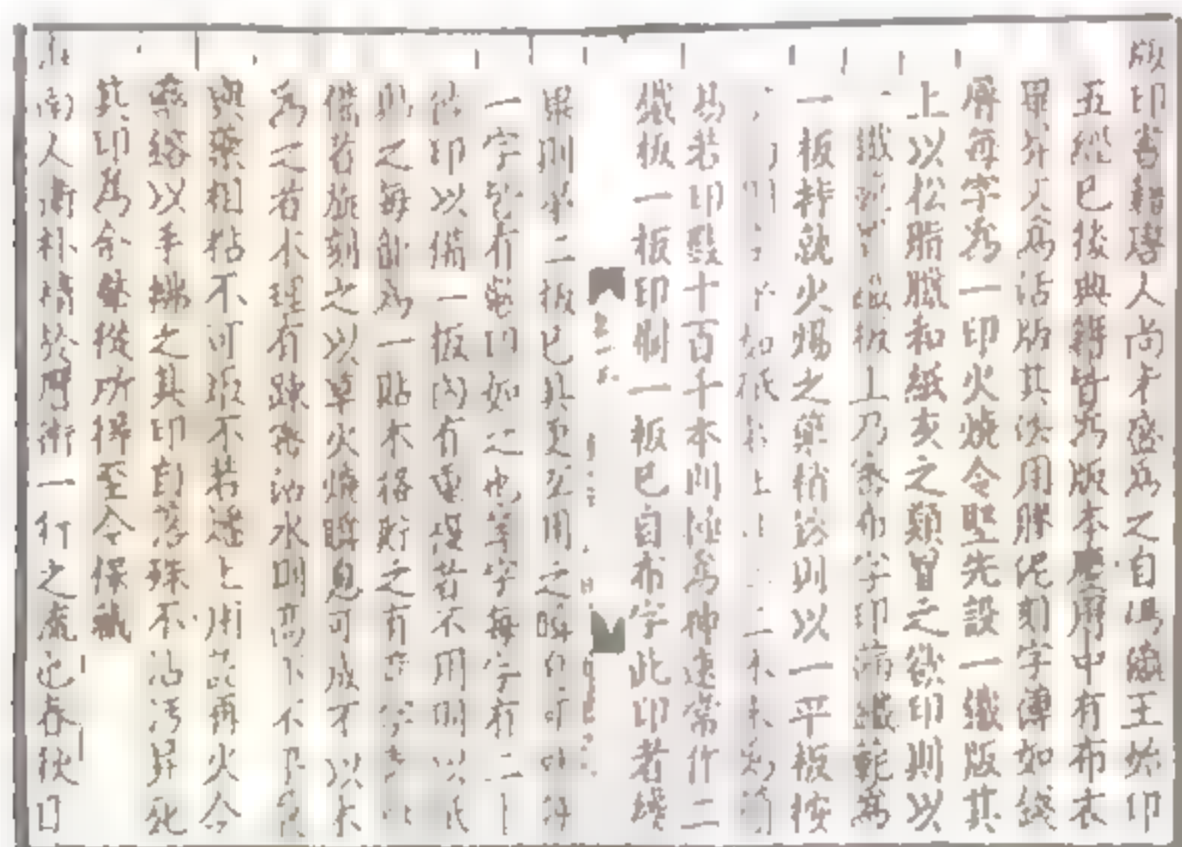 版印書籍唐人尚未盛為之自馮瀛王始印
五經已後典籍皆為版本慶曆中有布衣
畢昇又為活版其法用膠泥刻字薄如錢
唇每字為一印火燒令堅先設一鐵版其
上以松脂臘和紙灰之類冒之欲印則以
一鐵範置鐵板上乃密布字印滿鐵範為
一板持就火煬之藥稍鎔則以一平板按
則字平如砥若止二本未為簡
易若印數十百千本則極為神速常作二
鐵板一板印刷一板已自布字此印者纔
畢則第二板已具更互用之瞬息可就每
一字皆有數印如之也等字每字有二十
餘印以備一板內有重複者不用則以紙
貼之每韻為一貼木格貯之有奇字素無
備者旋刻之以草火燒瞬息可成不以木
為之者木理有疎密沾水則高下不平兼
與藥相粘不可取不若燔土用訖再火令
藥鎔以手拂之其印自落殊不沾污昇死
其印為余羣從所得至今保藏
淮南人衛朴精於曆術一行之流也春秋日